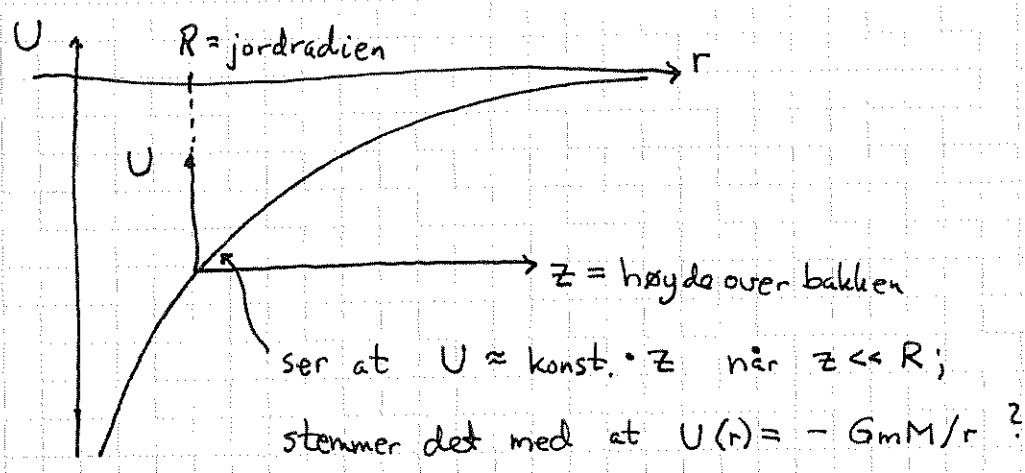 U
R = jordradien
r
U
z = høyde over bakken
ser at U ≈ konst. · z når z << R;
stemmer det med at U(r) = - GmM/r ?